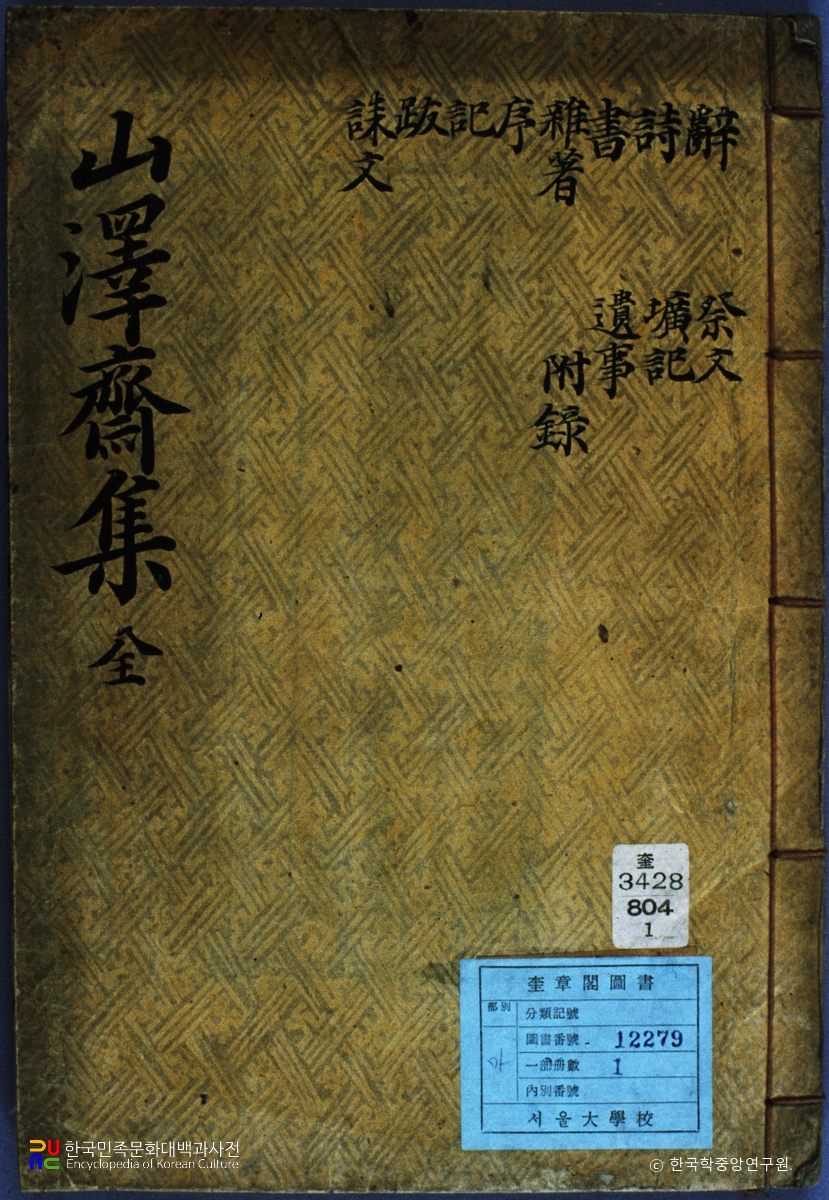 辭
詩
書
雜著
序
記
跋
誄文
祭文
壙記
遺事
附錄
山澤齋集 全
奎
3428
804
1
奎章閣圖書
部別
分類記號
圖書番號 12279
一部冊數 1
內別番號
서울大學校
한국민족문화대백과사전
Encyclopedia of Korean Culture
© 한국학중앙연구원